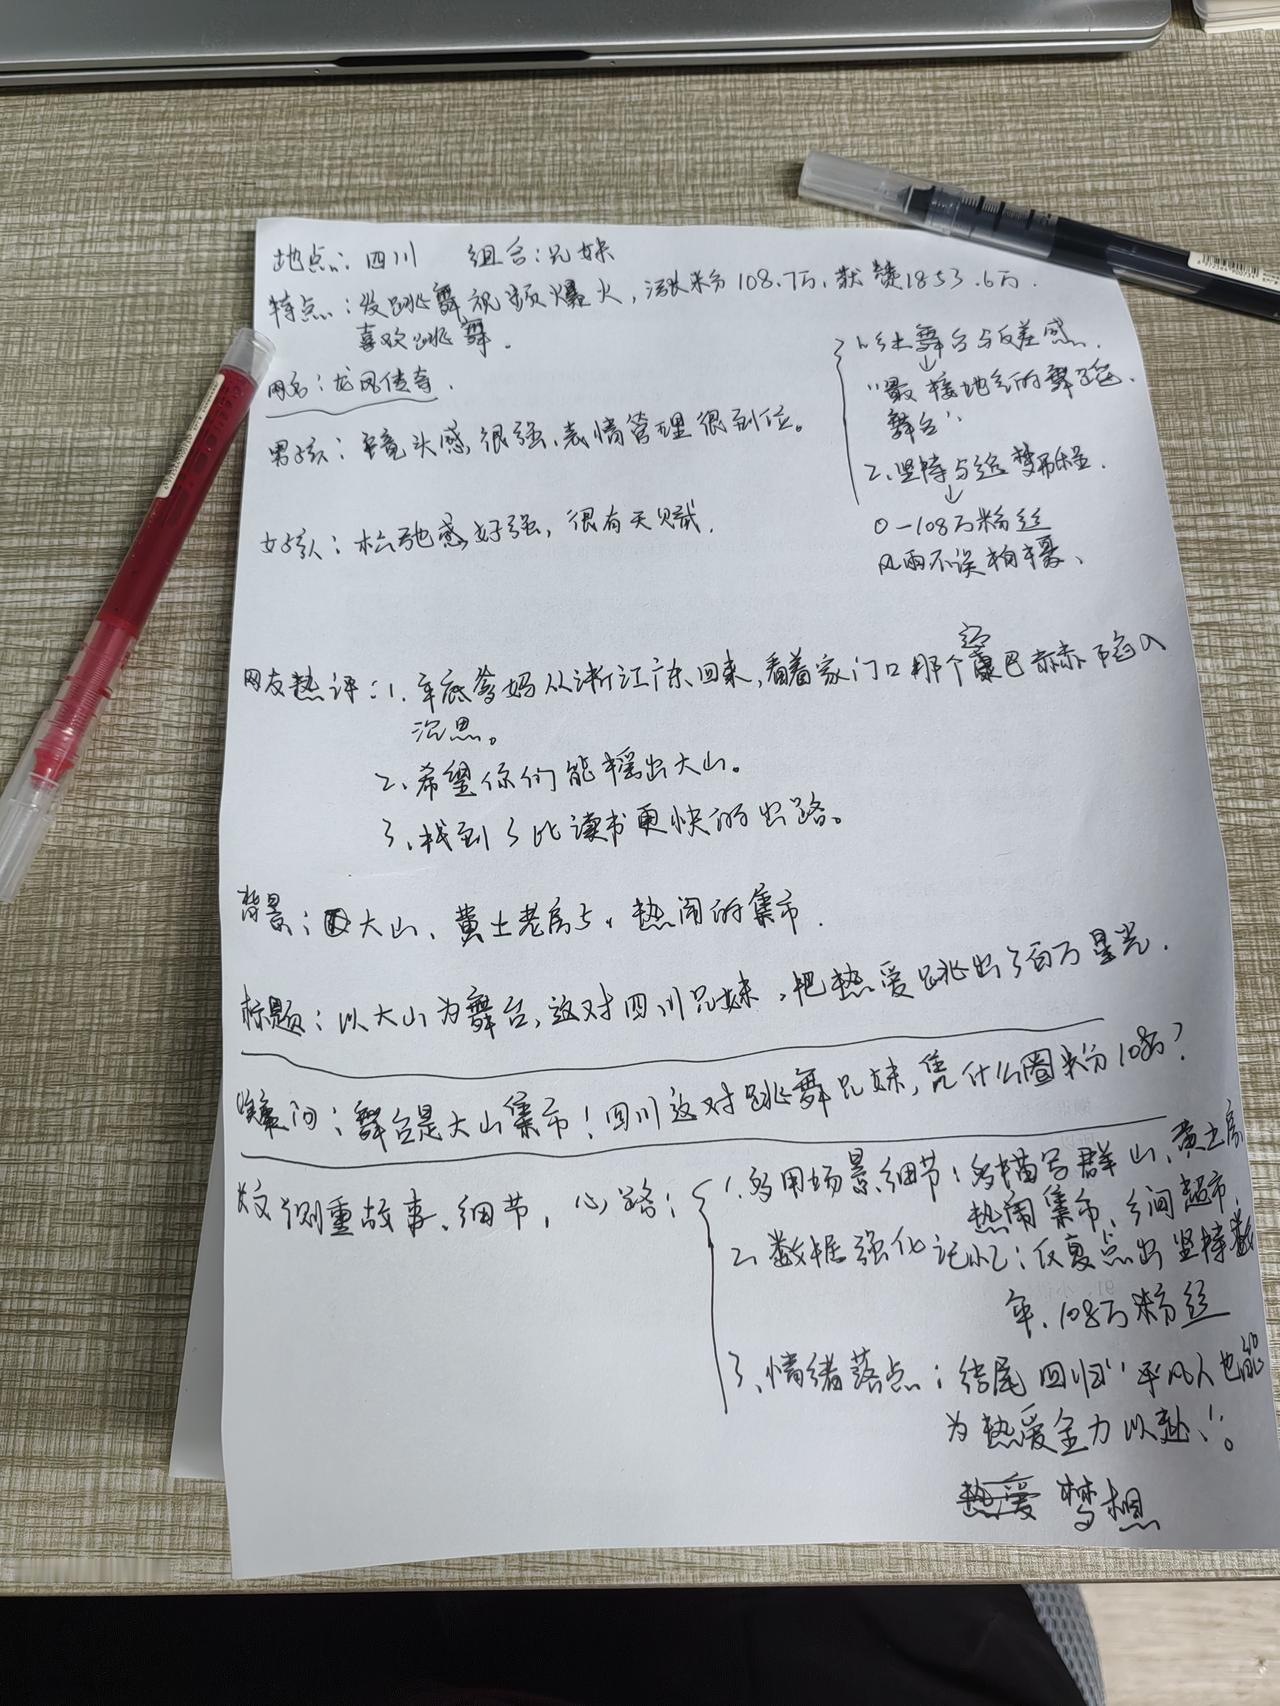 地点：四川 组合：兄妹
特点：发跳舞视频爆火，涨粉108.7万，获赞1853.6万.
喜欢跳舞.
网名：龙凤传奇.
男孩：镜头感很强、表情管理很到位。
女孩：松弛感好强，很有天赋.
1、乡土舞台与反差感.
↓
"最接地气的舞
舞台"
2、坚持与追梦.
↓
0-108万粉丝
风雨不误
网友热评：1、年底爸妈从浙江广东回来，看着家门口那个巴赫陷入
沉思。
2、希望你们能摇出大山。
3、找到了比读书更快的出路。
背景：大山、黄土老房与热闹的集市.
标题：以大山为舞台，这对四川兄妹，把热爱跳出了百万星光.
疑问：舞台是大山集市！四川这对跳舞兄妹，凭什么圈粉108万？
文侧重故事、细节，心路：
1、多用场景细节：多描写群山、黄土房
热闹集市、乡间超市.
2、数据强化记忆：反复点出坚持数
年、108万粉丝
3、情绪落点：结尾回归"平凡人也能
为热爱全力以赴"。
热爱 梦想